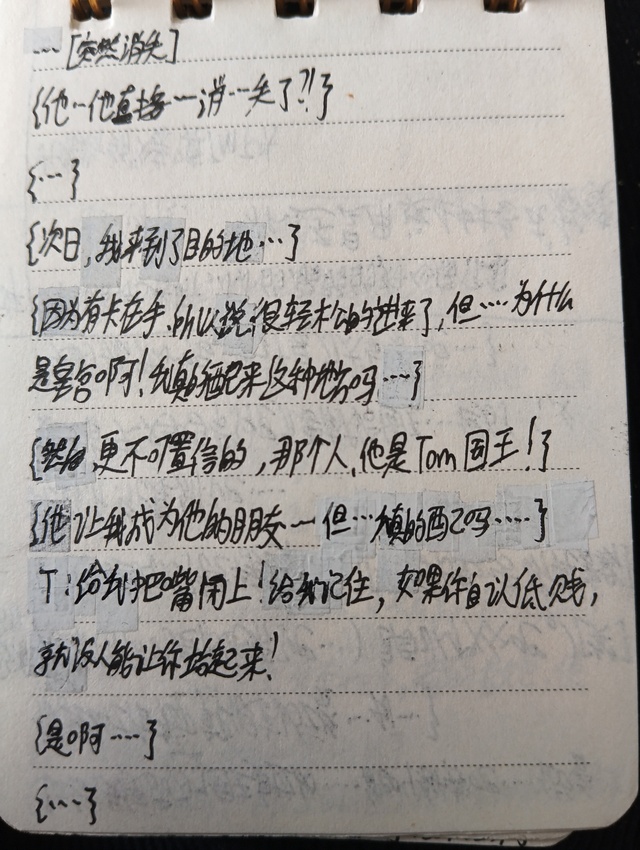 …[突然消失]
{他…他直接……消…失了?!}
{…}
{次日,我来到了目的地…}
{因为有卡在手,所以说,很轻松的进来了,但…为什么
是皇宫啊!我真的配来这种地方吗…}
{然后,更不可置信的,那个人,他是Tom国王!}
{他让我成为他的朋友一但…我真的配吗……}
T:给我把嘴闭上!给我记住,如果你自认低贱,
就没人能让你抬起来!
{是啊……}
{…}